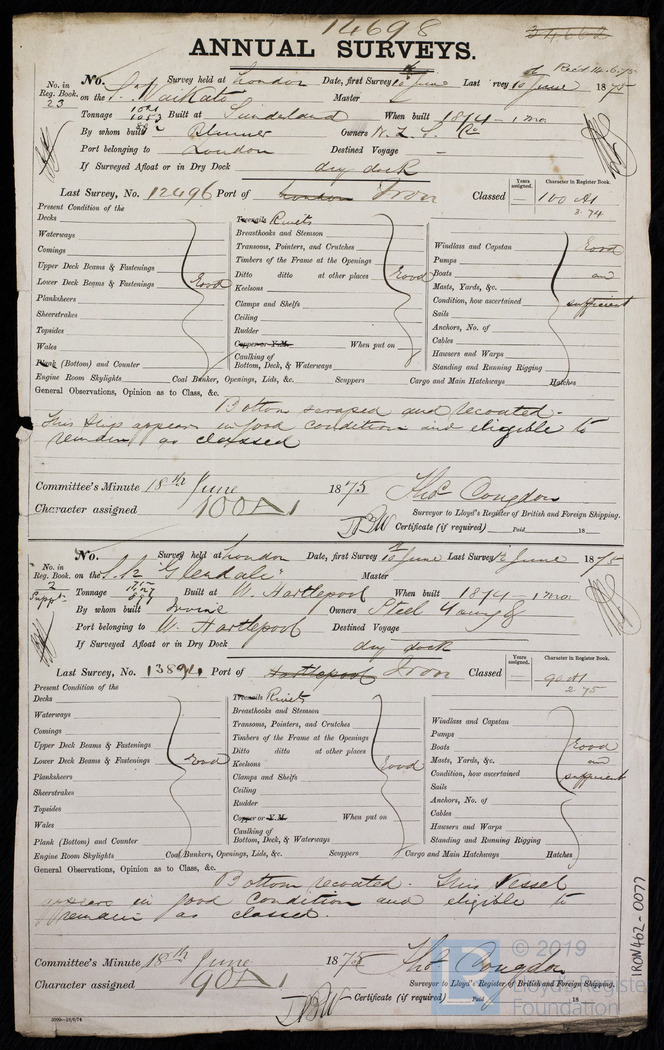 14698
34662
ANNUAL SURVEYS.
Rec'd 14.6.75
No. in Reg. Book. No. Survey held at London Date, first Survey 10 June Last Survey 10 June 1875
23 on the S. Waikato Master
Tonnage 1021 1053 Built at Sunderland When built 1874 - 1 mo
By whom built Blumer Owners N. Z. S. Co
Port belonging to London Destined Voyage -
If Surveyed Afloat or in Dry Dock dry dock
Last Survey, No. 12496 Port of London Iron Classed
Years assigned. Character in Register Book.
100 A1
3.74
Present Condition of the
Decks
Waterways
Comings
Upper Deck Beams & Fastenings
Lower Deck Beams & Fastenings Good
Planksheers
Sheerstrakes
Topsides
Wales
Plank (Bottom) and Counter
Treenails Rivets
Breasthooks and Stemson
Transoms, Pointers, and Crutches
Timbers of the Frame at the Openings
Ditto ditto at other places Good
Keelsons
Clamps and Shelfs
Ceiling
Rudder
Copper or Y.M. When put on
Caulking of
Bottom, Deck, & Waterways
Windlass and Capstan Good
Pumps
Boats and
Masts, Yards, &c.
Condition, how ascertained sufficient
Sails
Anchors, No. of
Cables
Hawsers and Warps
Standing and Running Rigging
Engine Room Skylights Coal Bunker, Openings, Lids, &c. Scuppers Cargo and Main Hatchways Hatches
General Observations, Opinion as to Class, &c.
Bottom scraped and recoated.
This Ship appears in good condition and eligible to
remain as classed
Committee's Minute 18th June 1875 Thos Congdon
Character assigned 100 A1 Surveyor to Lloyd's Register of British and Foreign Shipping.
Certificate (if required) Paid 18
No. in Reg. Book. No. Survey held at London Date, first Survey 10 June Last Survey 12 June 1875
on the S.s. "Glendale" Master
2 Suppt. Tonnage Built at W. Hartlepool When built 1874 - 1 mo
By whom built Irvine Owners Steel Young &
Port belonging to W. Hartlepool Destined Voyage
If Surveyed Afloat or in Dry Dock dry dock
Last Survey, No. 13894 Port of Hartlepool Iron Classed
Years assigned. Character in Register Book.
90 A1
2.75
Present Condition of the
Decks
Waterways
Comings
Upper Deck Beams & Fastenings
Lower Deck Beams & Fastenings Good
Planksheers
Sheerstrakes
Topsides
Wales
Plank (Bottom) and Counter
Treenails Rivets
Breasthooks and Stemson
Transoms, Pointers, and Crutches
Timbers of the Frame at the Openings
Ditto ditto at other places
Keelsons Good
Clamps and Shelfs
Ceiling
Rudder
Copper or Y.M. When put on
Caulking of
Bottom, Deck, & Waterways
Windlass and Capstan
Pumps
Boats Good
Masts, Yards, &c. and
Condition, how ascertained sufficient
Sails
Anchors, No. of
Cables
Hawsers and Warps
Standing and Running Rigging
Engine Room Skylights Coal Bunkers, Openings, Lids, &c. Scuppers Cargo and Main Hatchways Hatches
General Observations, Opinion as to Class, &c.
Bottom recoated. This Vessel
appears in good condition and eligible to
remain as classed.
Committee's Minute 18th June 1875 Thos Congdon
Character assigned 90 A1 Surveyor to Lloyd's Register of British and Foreign Shipping.
Certificate (if required) Paid 18
IRON462-0077
© 2019
Lloyd's Register
Foundation